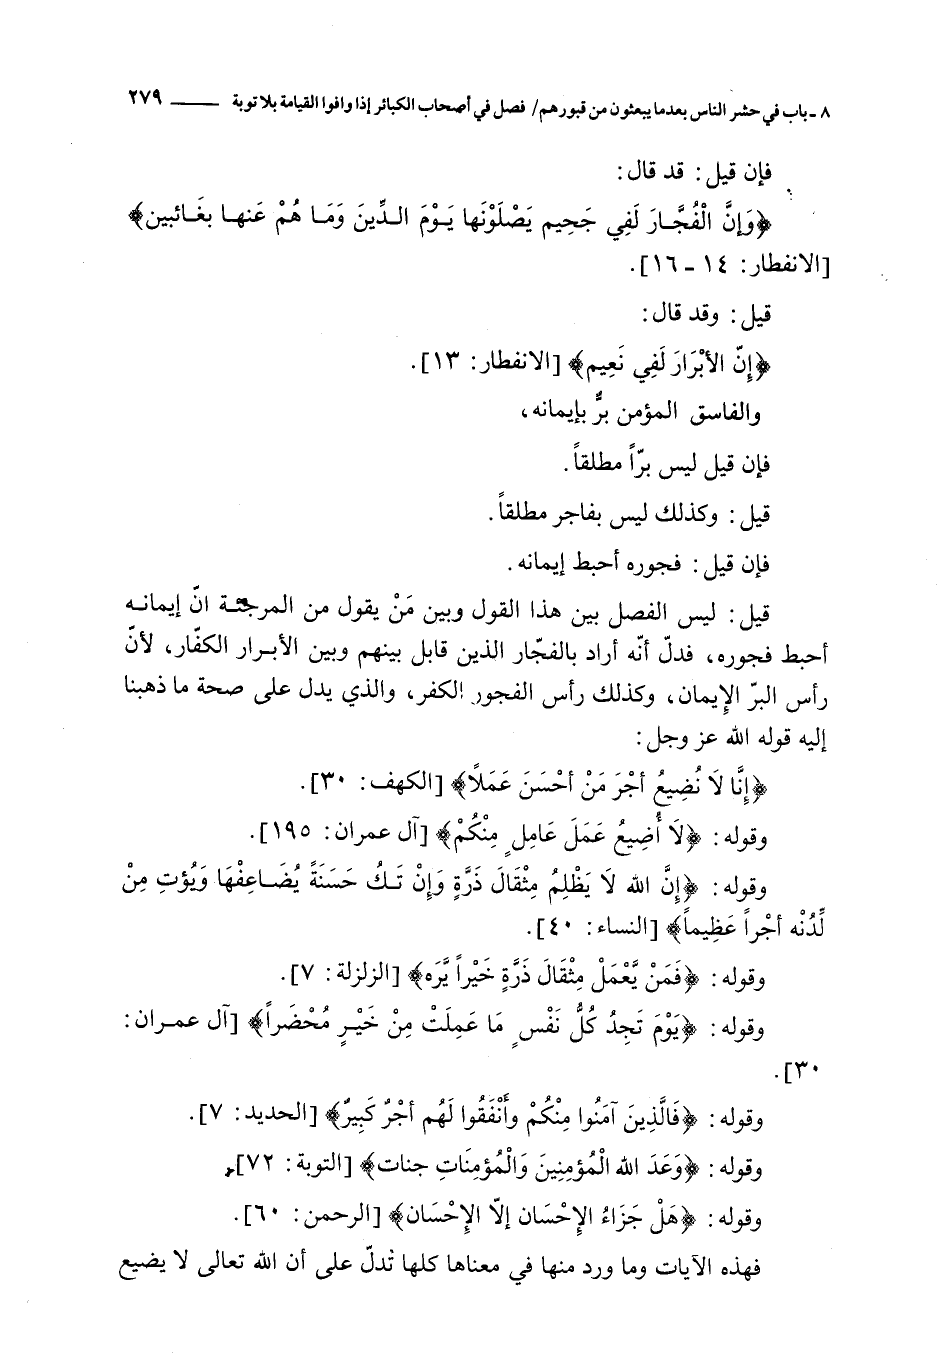 ٨ ـ باب في حشر الناس بعدما يبعثون من قبورهم/ فصل في أصحاب الكبائر إذا وافوا القيامة بلا توبة ــــــ ٢٧٩
فإن قيل: قد قال:
﴿وَإِنَّ الْفُجَّـارَ لَفِي جَحِيم يَصْلَوْنَها يَـوْمَ الـدِّينَ وَمَـا هُمْ عَنهـا بغَـائبين﴾
[الانفطار: ١٤ ـ ١٦].
قيل: وقد قال:
﴿إنّ الأبْرَارَ لَفِي نَعِيم﴾ [الانفطار: ١٣].
والفاسق المؤمن برٌّ بإيمانه،
فإن قيل ليس برّاً مطلقاً.
قيل: وكذلك ليس بفاجر مطلقاً.
فإن قيل: فجوره أحبط إيمانه.
قيل: ليس الفصل بين هذا القول وبين مَنْ يقول من المرجئـة انّ إيمانـه
أحبط فجوره، فدلّ أنّه أراد بالفجّار الذين قابل بينهم وبين الأبـرار الكفّار، لأنّ
رأس البرّ الإِيمان، وكذلك رأس الفجور الكفر، والذي يدل على صحة ما ذهبنا
إليه قوله الله عز وجل:
﴿إنَّا لَا نُضِيعُ أجْرَ مَنْ أحْسَنَ عَمَلًا﴾ [الكهف: ٣٠].
وقوله: ﴿لَا أُضِيعُ عَمَلَ عَامِلٍ مِنْكُمْ﴾ [آل عمران: ١٩٥].
وقوله: ﴿إنَّ الله لَا يَظْلِمُ مِثْقَالَ ذَرَّةٍ وَإنْ تَـكُ حَسَنَةً يُضَـاعِفْهَا وَيُؤتِ مِنْ
لِّدُنْه أجْراً عَظِيماً﴾ [النساء: ٤٠].
وقوله: ﴿فَمَنْ يَّعْمَلْ مِثْقَالَ ذَرَّةٍ خَيْراً يَّرَه﴾ [الزلزلة: ٧].
وقوله: ﴿يَوْمَ تَجِدُ كُلُّ نَفْسٍ مَا عَمِلَتْ مِنْ خَيْـرٍ مُحْضَراً﴾ [آل عمـران:
٣٠].
وقوله: ﴿فَالَّذِينَ آمَنُوا مِنْكُمْ وأَنْفَقُوا لَهُم أجْرٌ كَبِيرٌ﴾ [الحديد: ٧].
وقوله: ﴿وَعَدَ الله الْمُؤمِنِينَ وَالْمُؤمِنَاتِ جنات﴾ [التوبة: ٧٢]،
وقوله: ﴿هَلْ جَزَاءُ الإِحْسَان إلّا الإِحْسَان﴾ [الرحمن: ٦٠].
فهذه الآيات وما ورد منها في معناها كلها تدلّ على أن الله تعالى لا يضيع